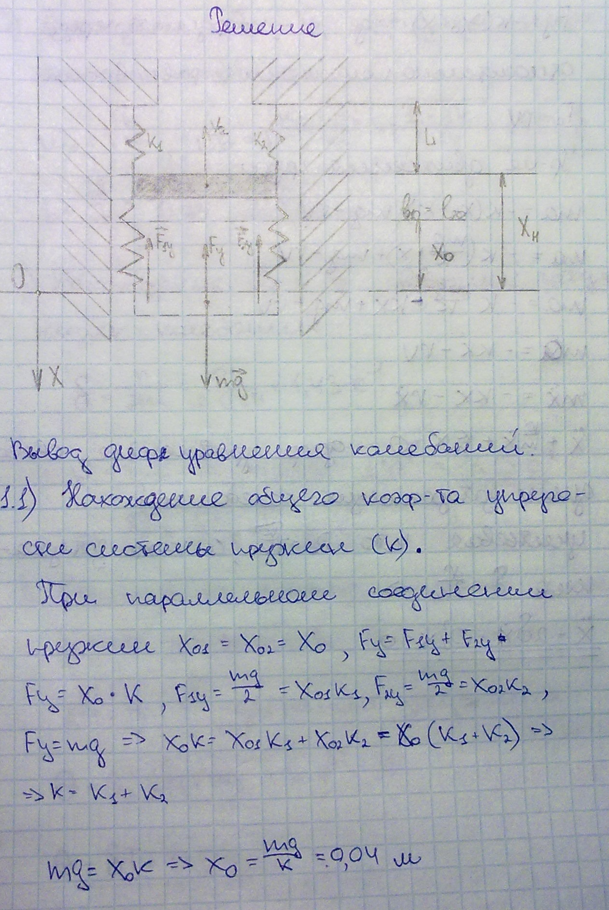 Решение
K₁
K₂
L
F₁у
Fу
F₂у
X₀
Xн
0
X
mg
Вывод диф. уравнения колебаний.
1.1) Нахождение общего коэф-та упруго-
сти системы пружин (K).
При параллельном соединении
пружин X₀₁ = X₀₂ = X₀, Fу = F₁у + F₂у
Fу = X₀ · K, F₁у = mg/2 = X₀₁K₁, F₂у = mg/2 = X₀₂K₂,
Fу = mg => X₀K = X₀₁K₁ + X₀₂K₂ = X₀(K₁+K₂) =>
=> K = K₁ + K₂
mg = X₀K => X₀ = mg/K = 0,04 м